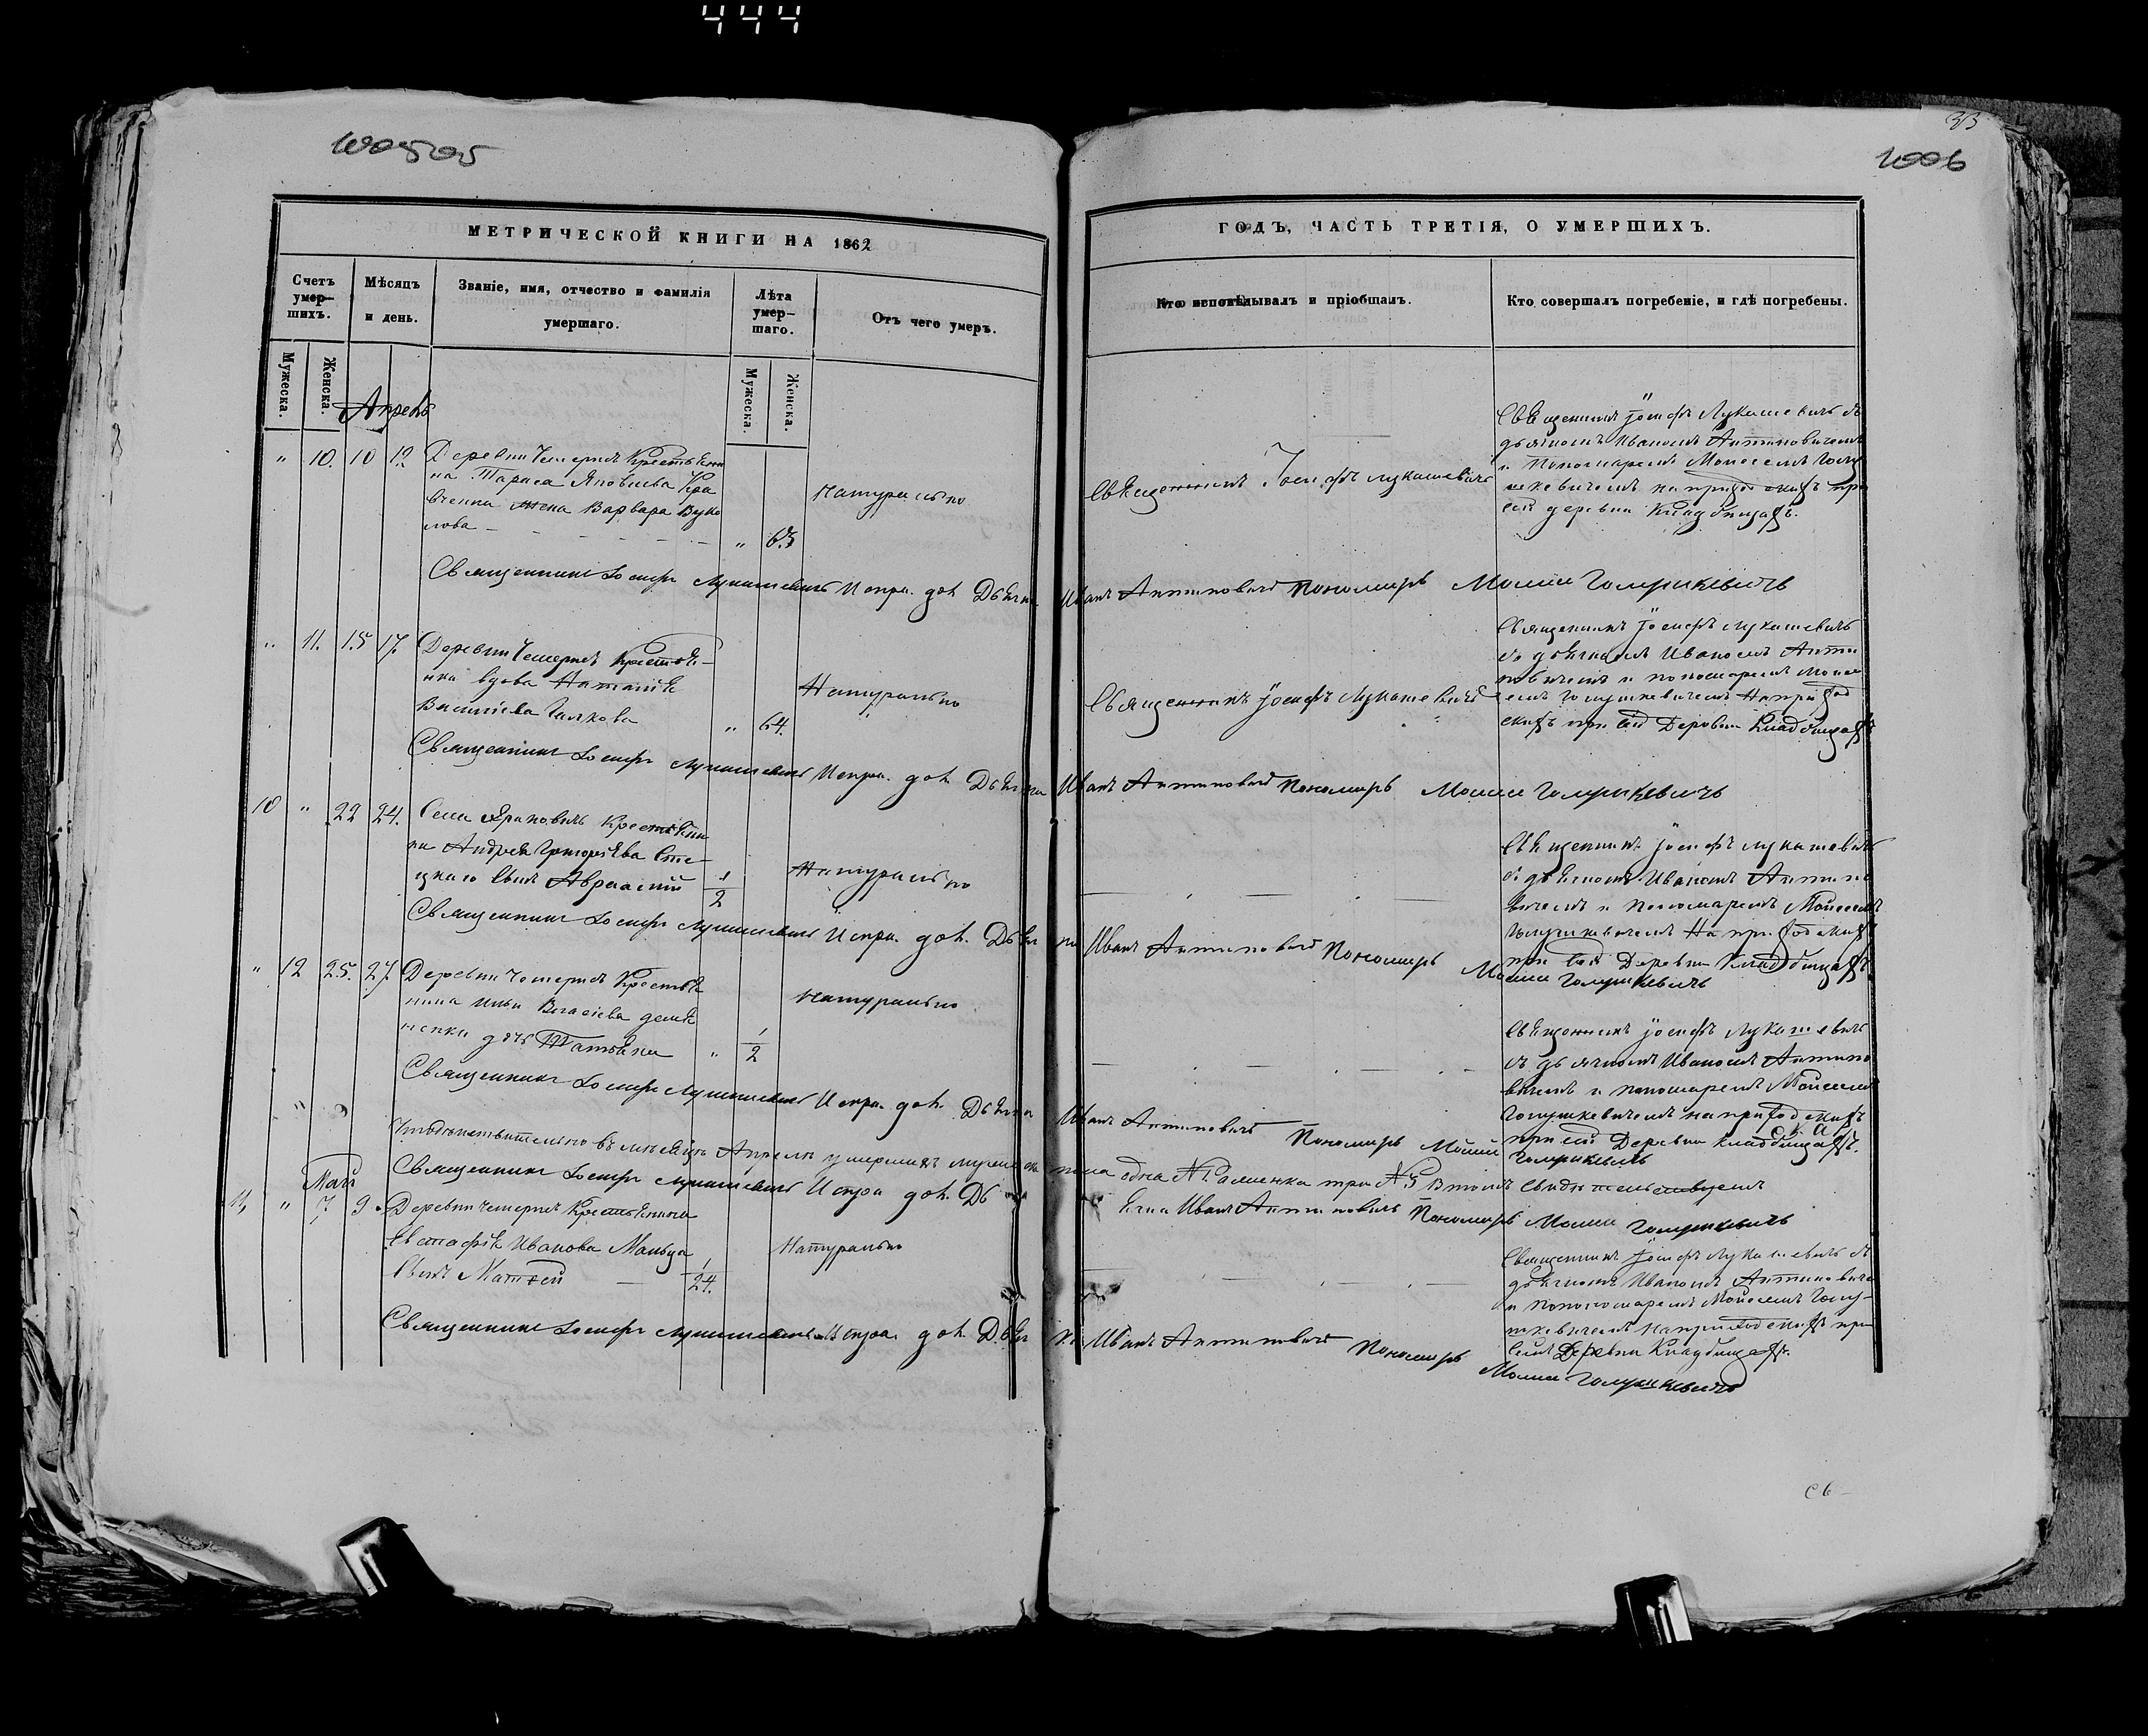 444
33
1006
МЕТРИЧЕСКОЙ КНИГИ НА 1862
ГОДЪ, ЧАСТЬ ТРЕТІЯ, О УМЕРШИХЪ.
Счетъ умер-шихъ.
Мѣсяцъ и день.
Званіе, имя, отчество и фамилія умершаго.
Лѣта умер-шаго.
Отъ чего умеръ.
Кто исповѣдывалъ и пріобщалъ.
Кто совершалъ погребеніе, и гдѣ погребены.
Мужеска.
Женска.
Мужеска.
Женска.
Апрель
" 10. 10 12
Деревни Чемерисъ Крестьяни
на Тараса Яковлева Кра
вченка жена Варвара Вуко
лова
" 63
натурально
Священникъ Іосифъ Лукашевичъ
Священникъ Іосифъ Лукашевичъ съ
дьячкомъ Иваномъ Антиповичемъ
и Пономаремъ Моисеемъ Голу
шкевичемъ на приходскихъ при
сей деревни Кладбищахъ.
Священникъ Іосифъ Лукашевичъ Испра. дол. Дьячка Иванъ Антиповичъ Пономарь Моисей Голушкевичъ
" 11. 15 17.
Деревни Чемерисъ Крестья-
нка вдова Наталія
Василіева
" 64.
Натурально
Священникъ Іосифъ Лукашевичъ
Священникъ Іосифъ Лукашевичъ
съ дьячкомъ Иваномъ Анти
повичемъ и пономаремъ Моисе
емъ Голушкевичемъ На приход
скихъ при сей Деревни Кладбищахъ
Священникъ Іосифъ Лукашевичъ Испра. дол. Дьячка Иванъ Антиповичъ Пономарь Моисей Голушкевичъ
10 " 22 24.
Села Крестьяни
на Андрея Григоріева Сте-
цкаго Сынъ
1/2
Натурально
Священникъ Іосифъ Лукашевичъ
съ дьячкомъ Иваномъ Антипо
вичемъ и Пономаремъ Моисеемъ
Голушкевичемъ На приходскихъ
при сей Деревни Кладбищахъ
Священникъ Іосифъ Лукашевичъ Испра. дол. Дьячка Иванъ Антиповичъ Пономарь Моисей Голушкевичъ
" 12 25. 27.
Деревни Чемерисъ Крестья
нина Ильи Власіева
дочь Татіяна
" 1/2
натурально
Священникъ Іосифъ Лукашевичъ
съ дьячкомъ Иваномъ Антипо
вичемъ и пономаремъ Моисеемъ
Голушкевичемъ на приходскихъ
при сей Деревни кладбищахъ.
Священникъ Іосифъ Лукашевичъ Испра. дол. Дьячка Иванъ Антиповичъ Пономарь Моисей Голушкевичъ
Что дѣйствительно въ мѣсяцѣ Апрелѣ умершихъ мужеска пола одна № 1 а женска три № 3 В томъ свидѣтельствуемъ
Священникъ Іосифъ Лукашевичъ Испра дол. Дьячка Иванъ Антиповичъ Пономарь Моисей Голушкевичъ
Май
11, " 7 9.
Деревни Чемерисъ Крестьянина
Евстафія Иванова
Сынъ Матѳей
1/24.
Натурально
Священникъ Іосифъ Лукашевичъ съ
дьячкомъ Иваномъ Антипович
и пономаремъ Моисеемъ Голу-
шкевичемъ на приходскихъ при
сей Деревни Кладбищахъ.
Священникъ Іосифъ Лукашевичъ Испра. дол. Дьячка Иванъ Антиповичъ Пономарь Моисей Голушкевичъ